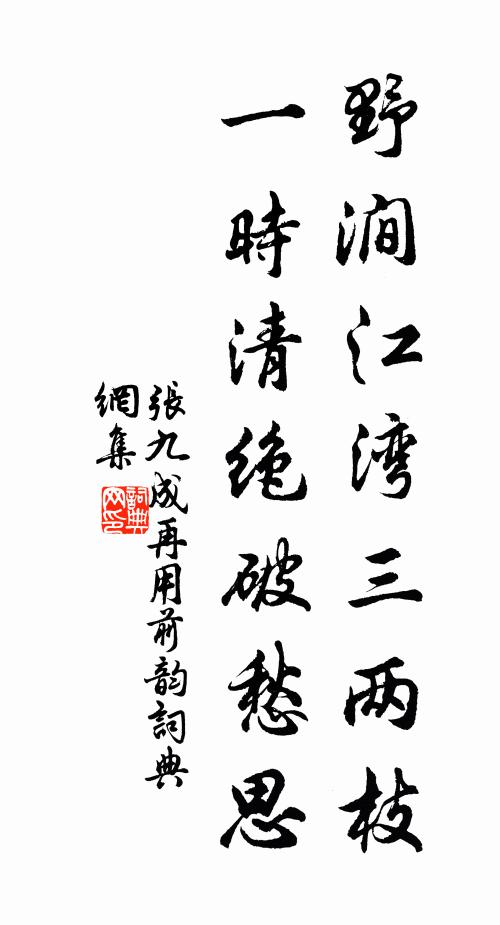 野涧江湾三两枝
一時清绝破愁思
張九成再用前韵詞典
網集
詞典网印